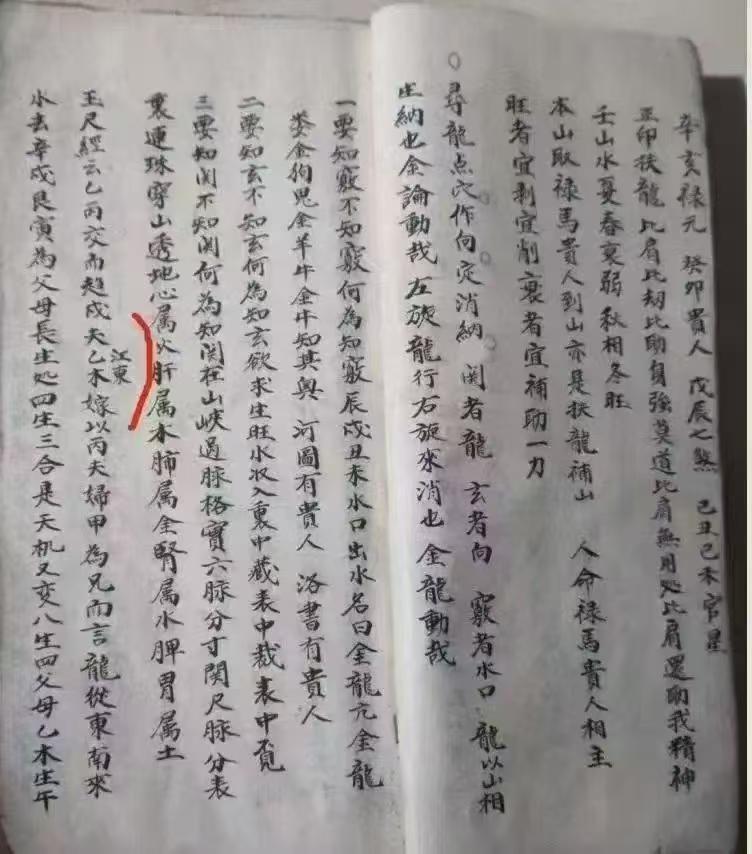 辛亥禄元 癸卯貴人 戊辰七煞 己丑己未官星
正印扶龍比肩比劫比助身強莫道比肩無用処比肩還助我精神
壬山水夏春衰弱秋相冬旺
本山取禄馬貴人到山亦是扶龍補山 人命禄馬貴人相主
旺者宜剥宜削衰者宜補助一力
尋龍点穴作向定消納 関者龍 玄者向 竅者水口 龍以山相
生納也全論動哉 左旋龍行右旋水消也 金龍動哉
一要知竅不知竅何為知竅辰戌丑未水口出水名曰金龍亢金龍
婁金狗鬼金羊牛金牛知其輿 河圖有貴人 洛書有貴人
二要知玄不知玄何為知玄欲求生旺水收入裏中藏表中裁表中覓
三要知関不知関何為知関在山峽過脉格寶六脉分寸関尺脉分表
裏連珠穿山透地心属火肝属木肺属金腎属水脾胃属土
江東
玉尺經云乙丙交而趨戌夫乙木嫁以丙夫婦甲為兄而言龍從東南來
水去辛戌艮寅為父母長生処四生三合是天机又变八生四父母乙木生午